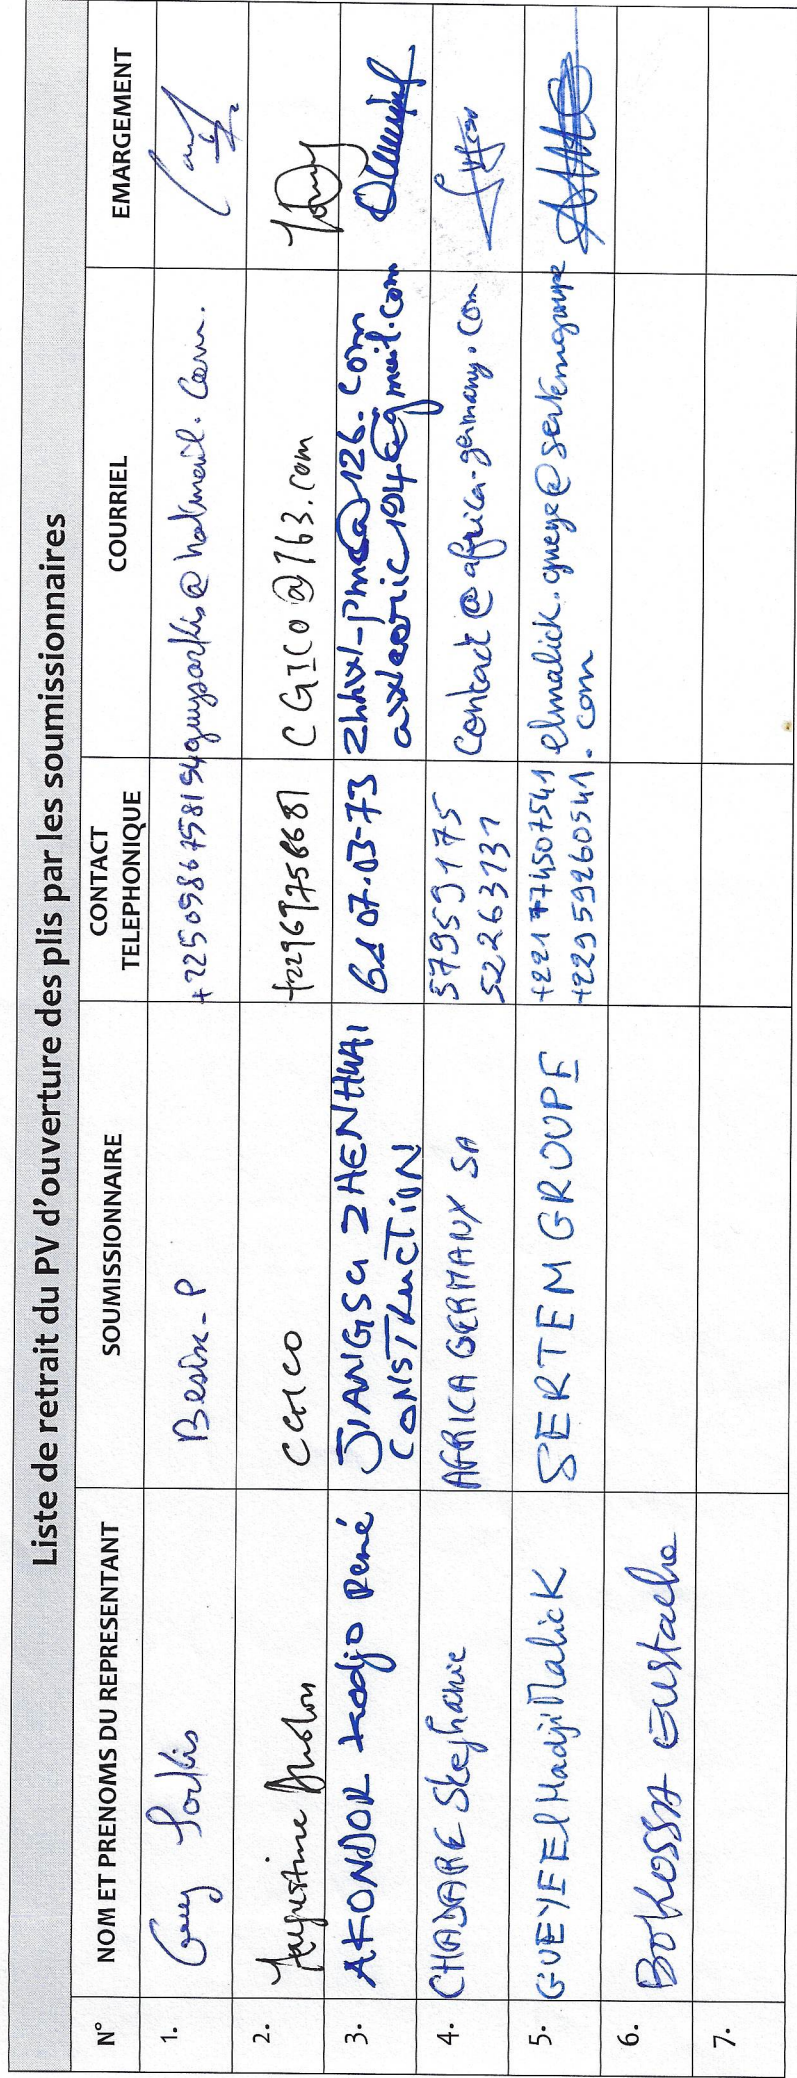 Liste de retrait du PV d'ouverture des plis par les soumissionnaires
N° NOM ET PRENOMS DU REPRESENTANT SOUMISSIONNAIRE CONTACT TELEPHONIQUE COURRIEL EMARGEMENT
1. Guy Sarkis Besix-P +2250986758154 guysarkis@hotmail.com.
2. Augustine CGICO +22969758681 CGICO@163.com
3. AKONDOR Kodjo René JIANGSU ZHENHUAI CONSTRUCTION 61 07-03-73 zhhxl-pmc@126.com
4. CHADARE Stephanie AFRICA GERMANY SA 57959175 52263131 contact@africa-germany.com
5. GUEYE El Hadji Malick SERTEM GROUPE +221774507541 +22959260541 elmalick.gueye@sertemgroupe.com
6. BOKOSSA Eustache
7.